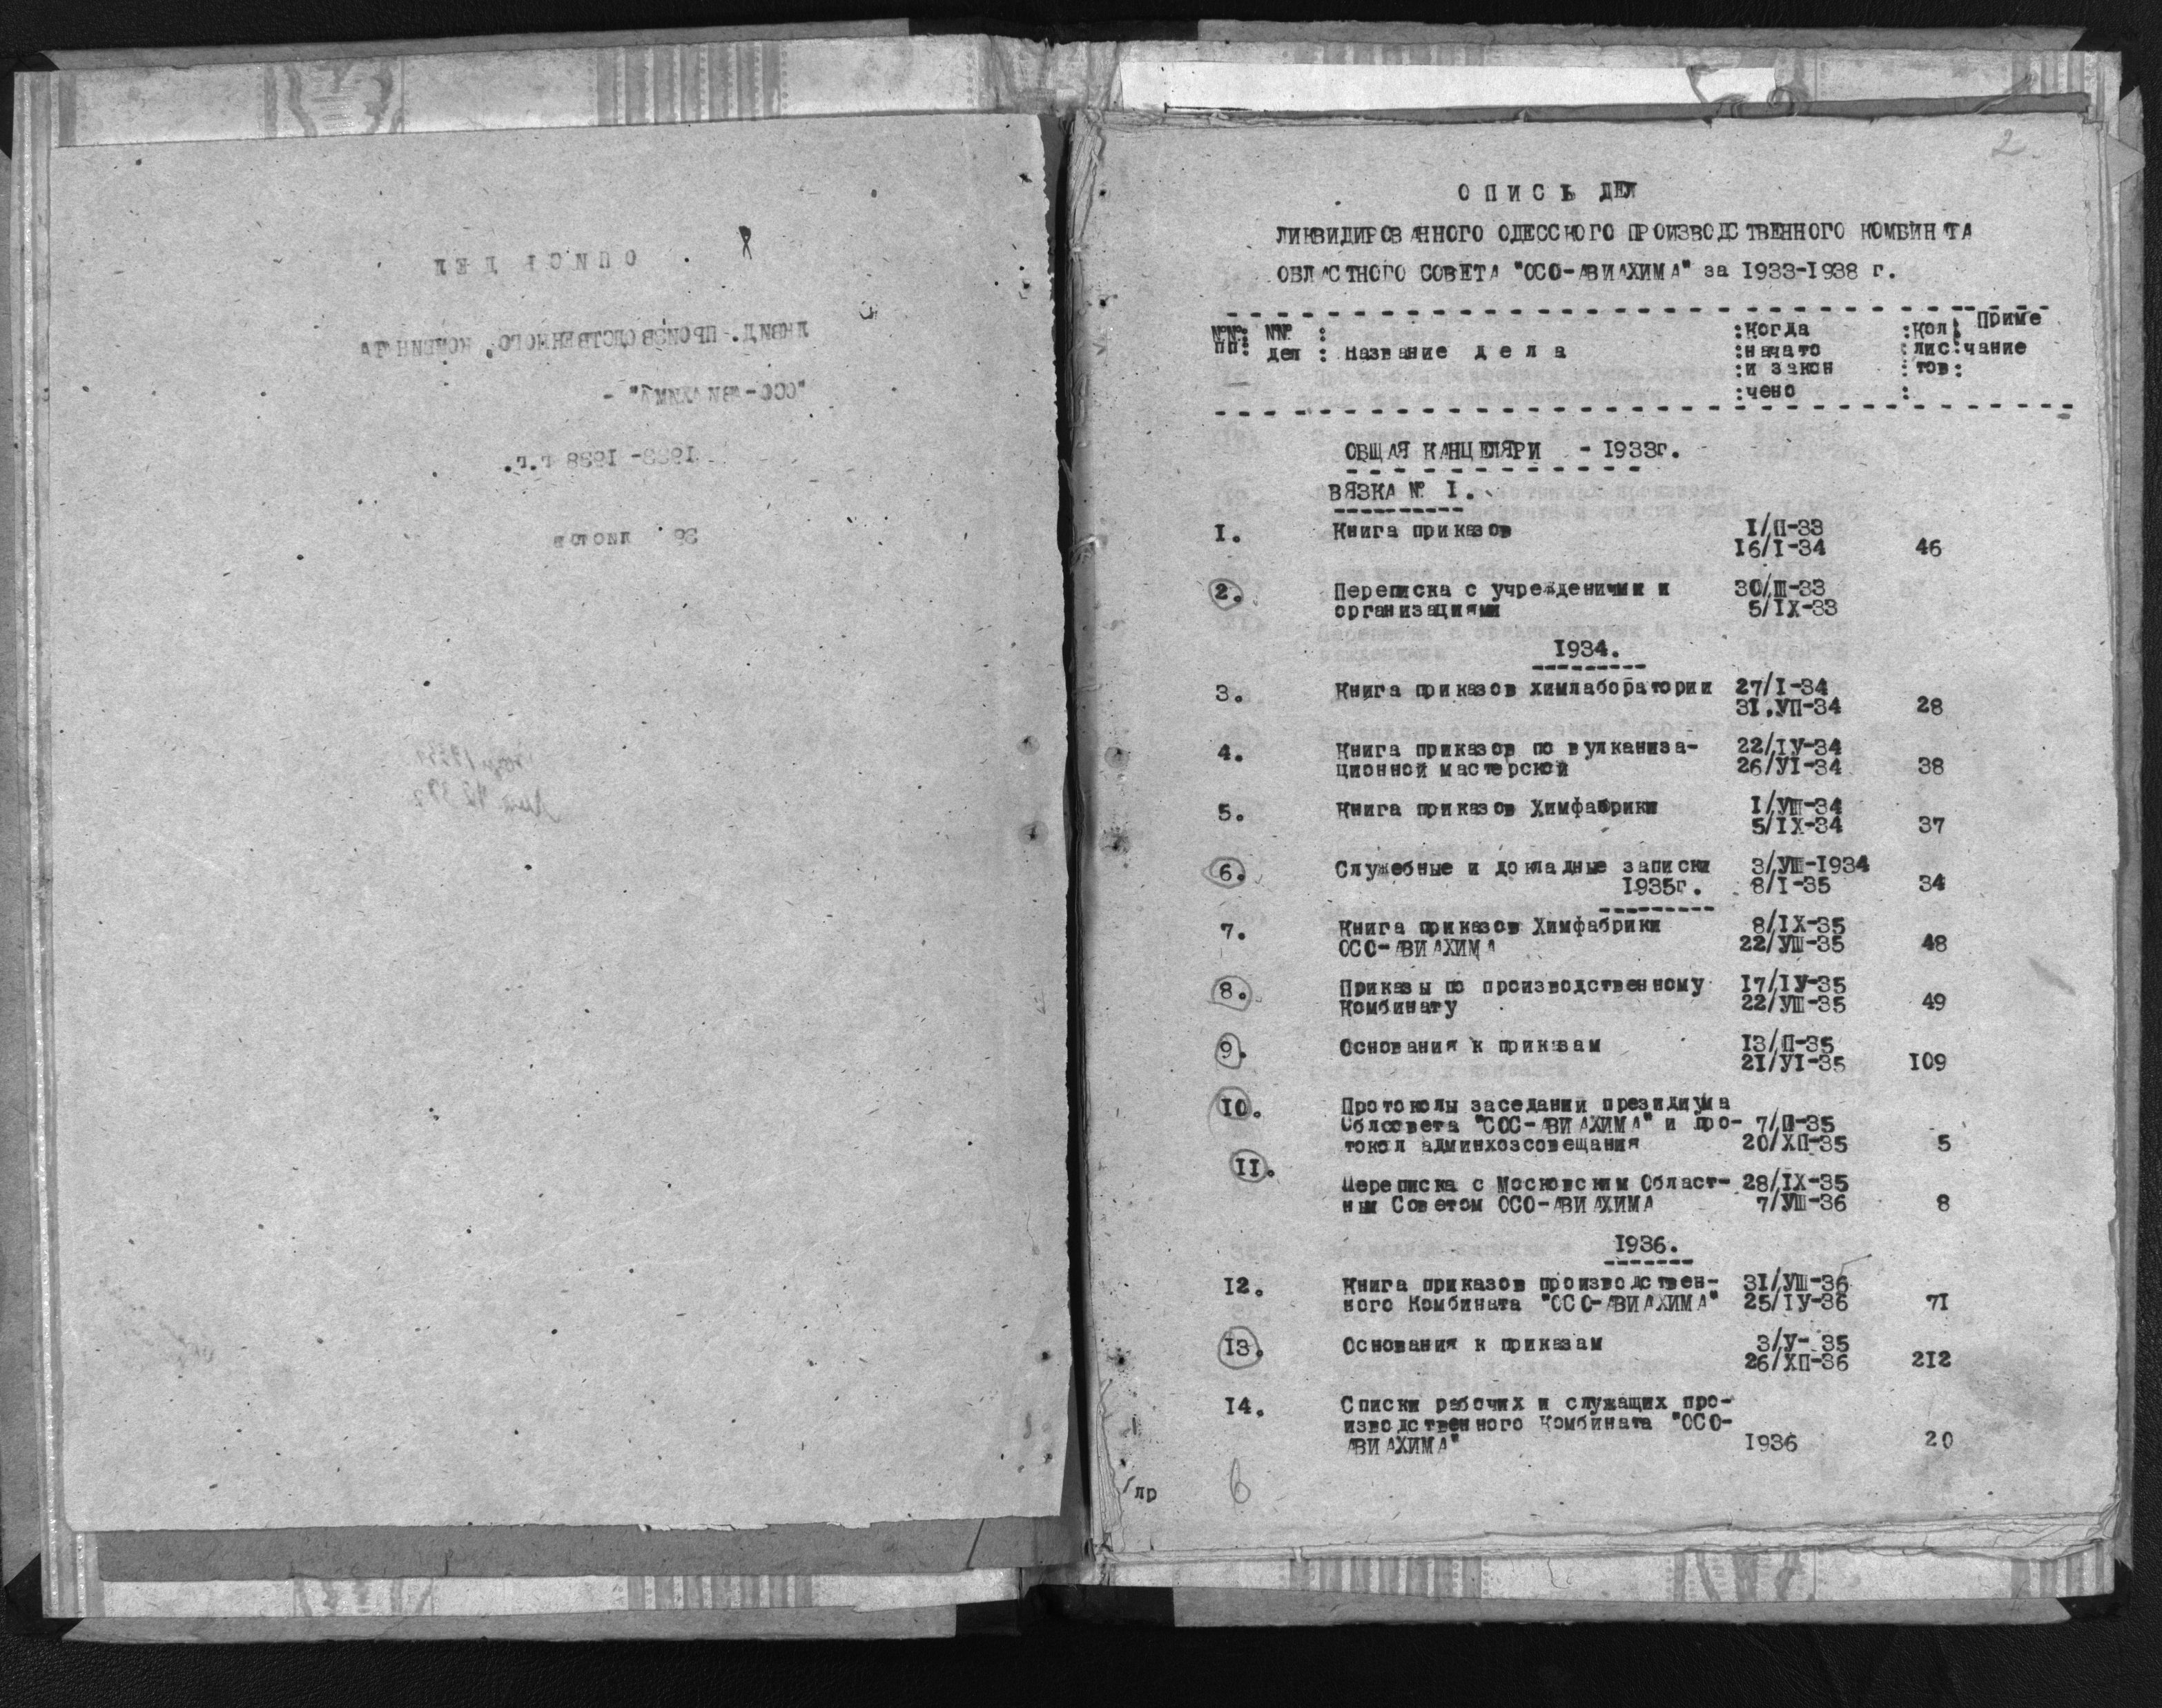 2
ОПИСЬ ДЕЛ
ЛИКВИДИРОВАННОГО ОДЕССКОГО ПРОИЗВОДСТВЕННОГО КОМБИНАТА
ОБЛАСТНОГО СОВЕТА "ОСО-АВИАХИМА" за 1933-1938 г.
№№: №№ : :Когда :Кол: Приме
пп: дел : Название дела :начато :лис:чание
:и закон :тов:
:чено :
ОБЩАЯ КАНЦЕЛЯРИ - 1933г.
ВЯЗКА № I.
I. Книга приказов I/П-33
16/I-34 46
2. Переписка с учреждениями и 30/Ш-33
организациями 5/IX-33
1934.
3. Книга приказов химлаборатории 27/I-34
31.УП-34 28
4. Книга приказов по вулканиза- 22/IУ-34
ционной мастерской 26/УI-34 38
5. Книга приказов Химфабрики I/УШ-34
5/IX-34 37
6. Служебные и докладные записки 3/УШ-1934
1935г. 8/I-35 34
7. Книга приказов Химфабрики 8/IX-35
ОСО-АВИАХИМА 22/УШ-35 48
8. Приказы по производственному 17/IУ-35
Комбинату 22/УШ-35 49
9. Основания к приказам 13/П-35
21/УI-35 109
10. Протоколы заседании президиума
Облсовета "СОС-АВИАХИМА" и про- 7/П-35
токол админхозсовещания 20/ХП-35 5
II.
Переписка с Московским Област- 28/IX-35
ным Советом ОСО-АВИАХИМА 7/УШ-36 8
1936.
12. Книга приказов производствен- 31/УШ-36
ного Комбината "ОСО-АВИАХИМА" 25/IУ-36 71
13. Основания к приказам 3/У- 35
26/ХП-36 212
14. Списки рабочих и служащих про-
изводственного Комбината "ОСО-
АВИАХИМА" 1936 20
лр
6
ОПИСЬ ДЕЛ
ЛИКВИД. ПРОИЗВОДСТВЕННОГО. КОМБИНАТА
"ОСО-АВИАХИМА" -
1933- 1938 г.г.
36 листов